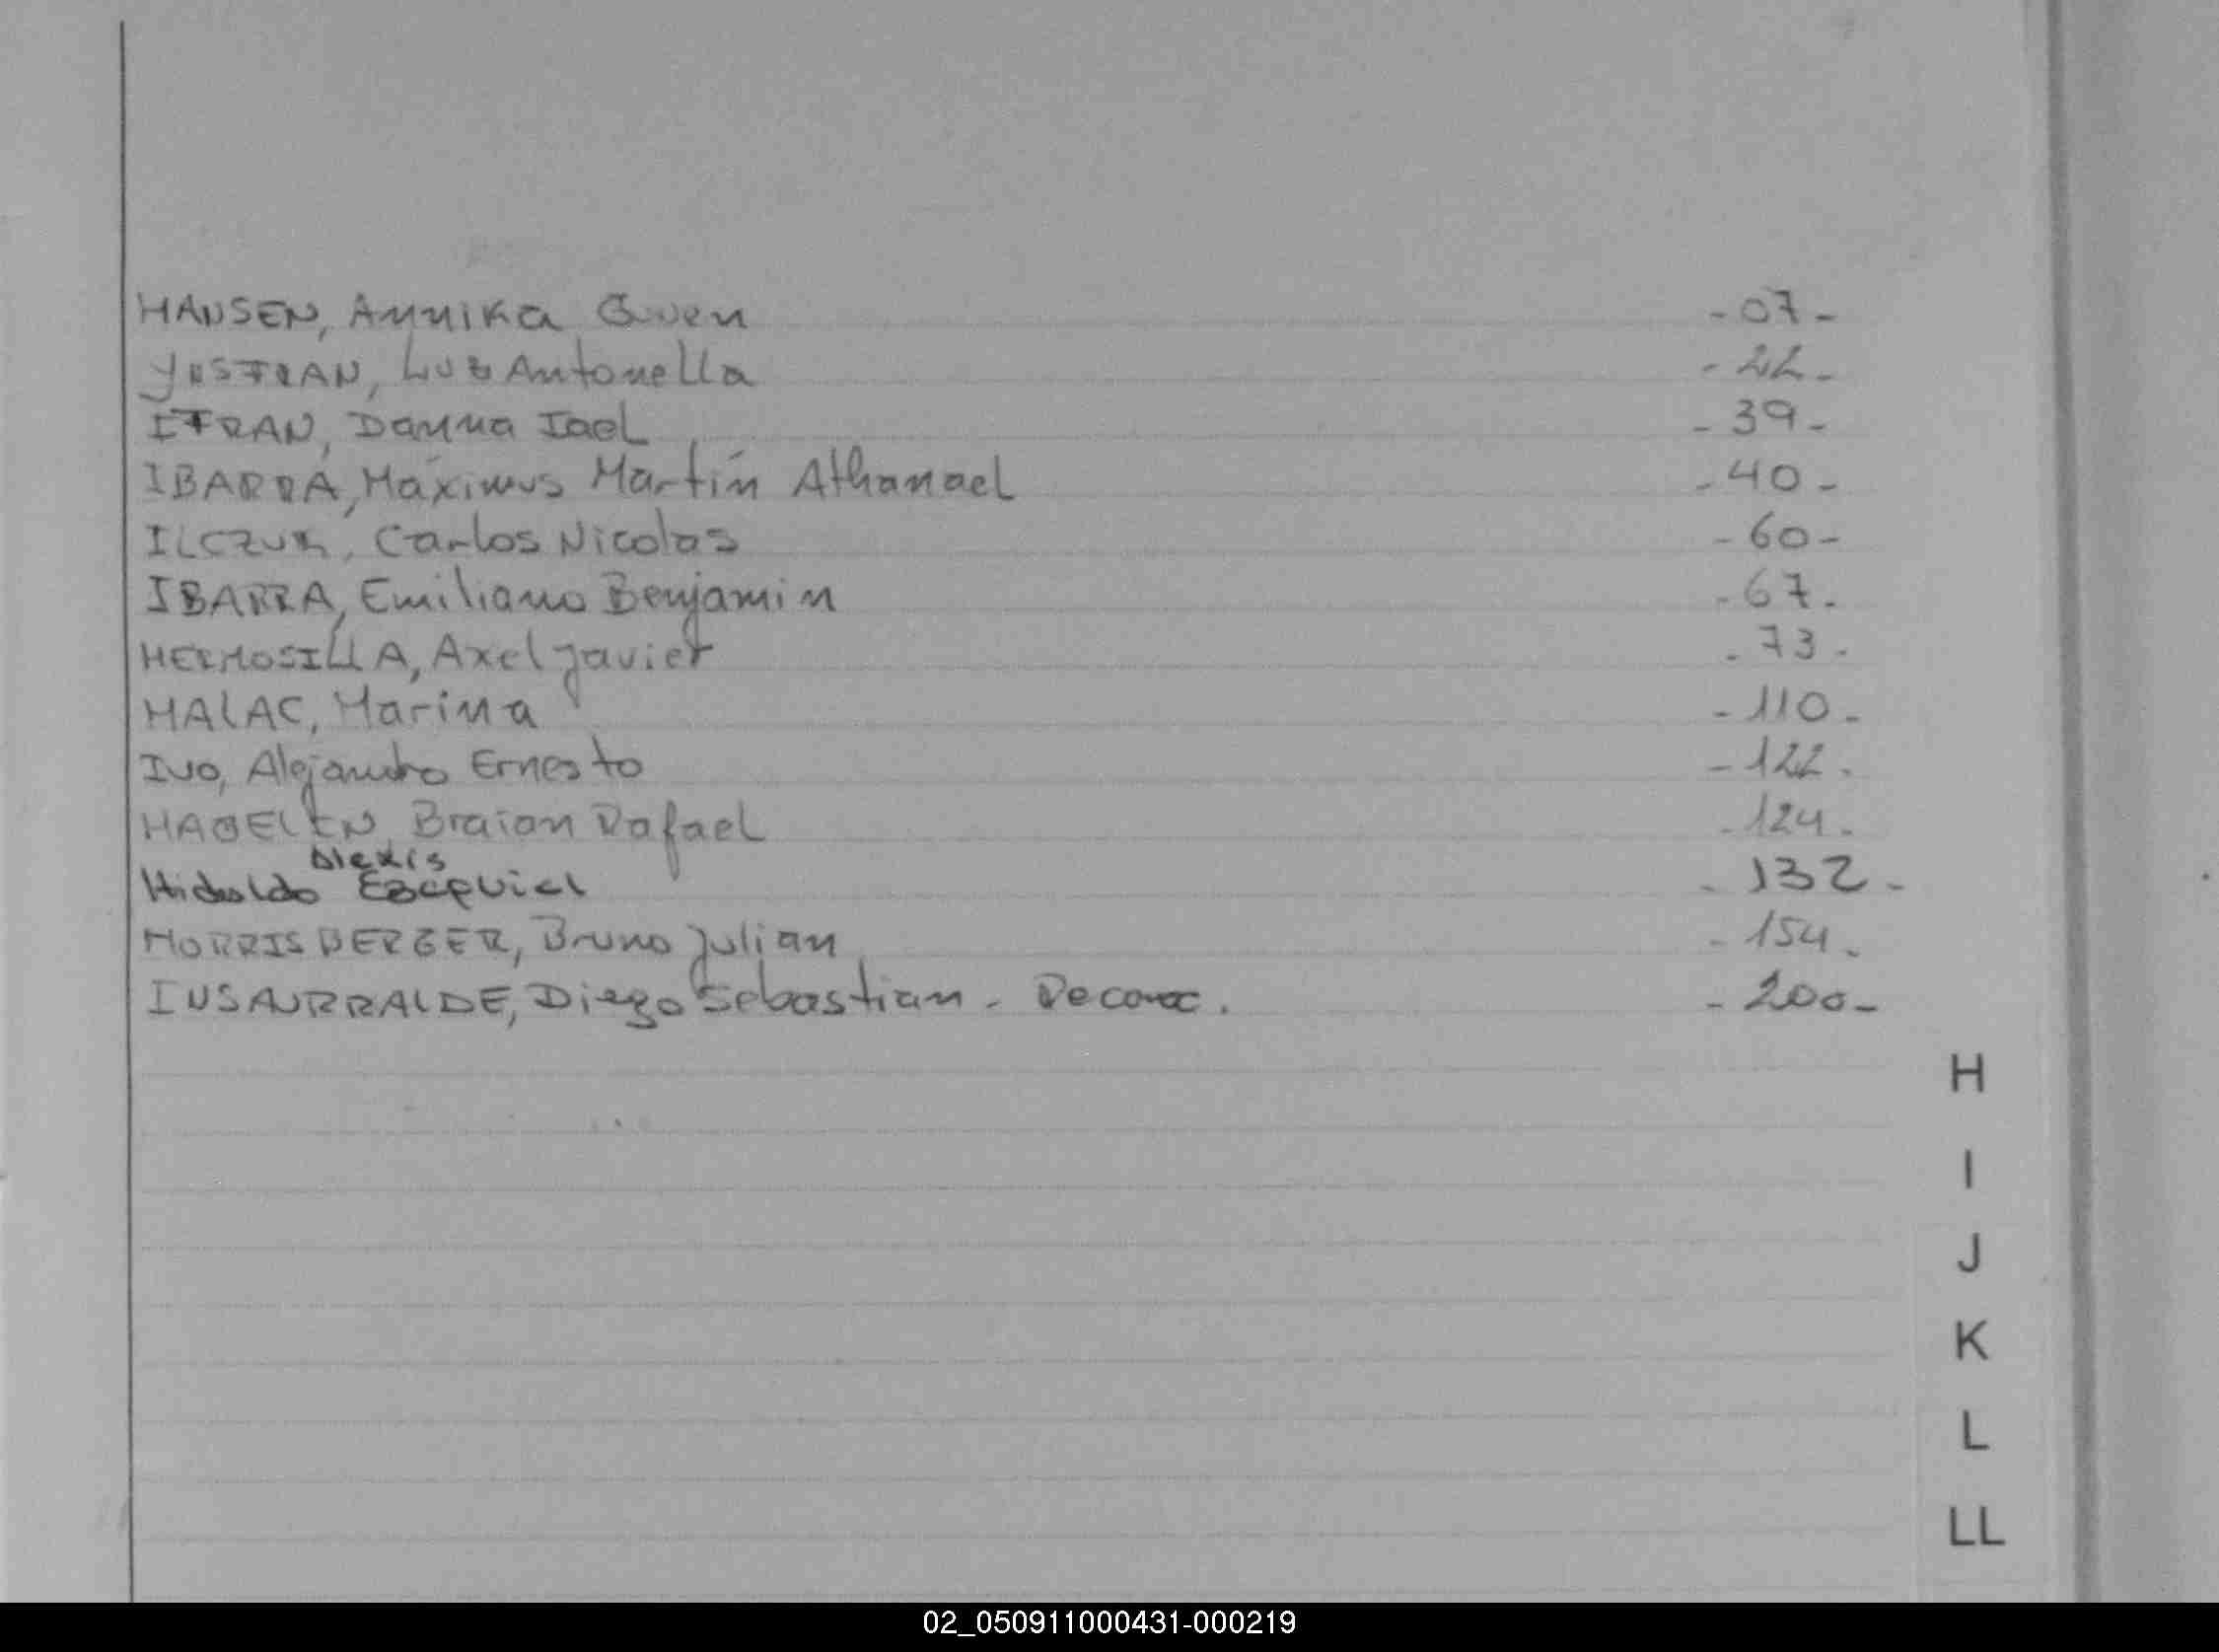 HANSEN, Annika Gwen - 07 -
YUSTRAN, Luz Antonella - 22 -
IFRAN, Danna Iael - 39 -
IBARRA, Máximus Martín Athanael - 40 -
ILCZUK, Carlos Nicolas - 60 -
IBARRA, Emiliano Benjamin - 67 -
HERMOSILLA, Axel Javier - 73 -
HALAC, Marina - 110 -
IVO, Alejandro Ernesto - 122 -
Braian Rafael - 124 -
Alexis
Ezequiel - 132 -
MORRISBERGER, Bruno Julian - 154 -
INSAURRALDE, Diego Sebastian - - 200 -
H
I
J
K
L
LL
02_050911000431-000219